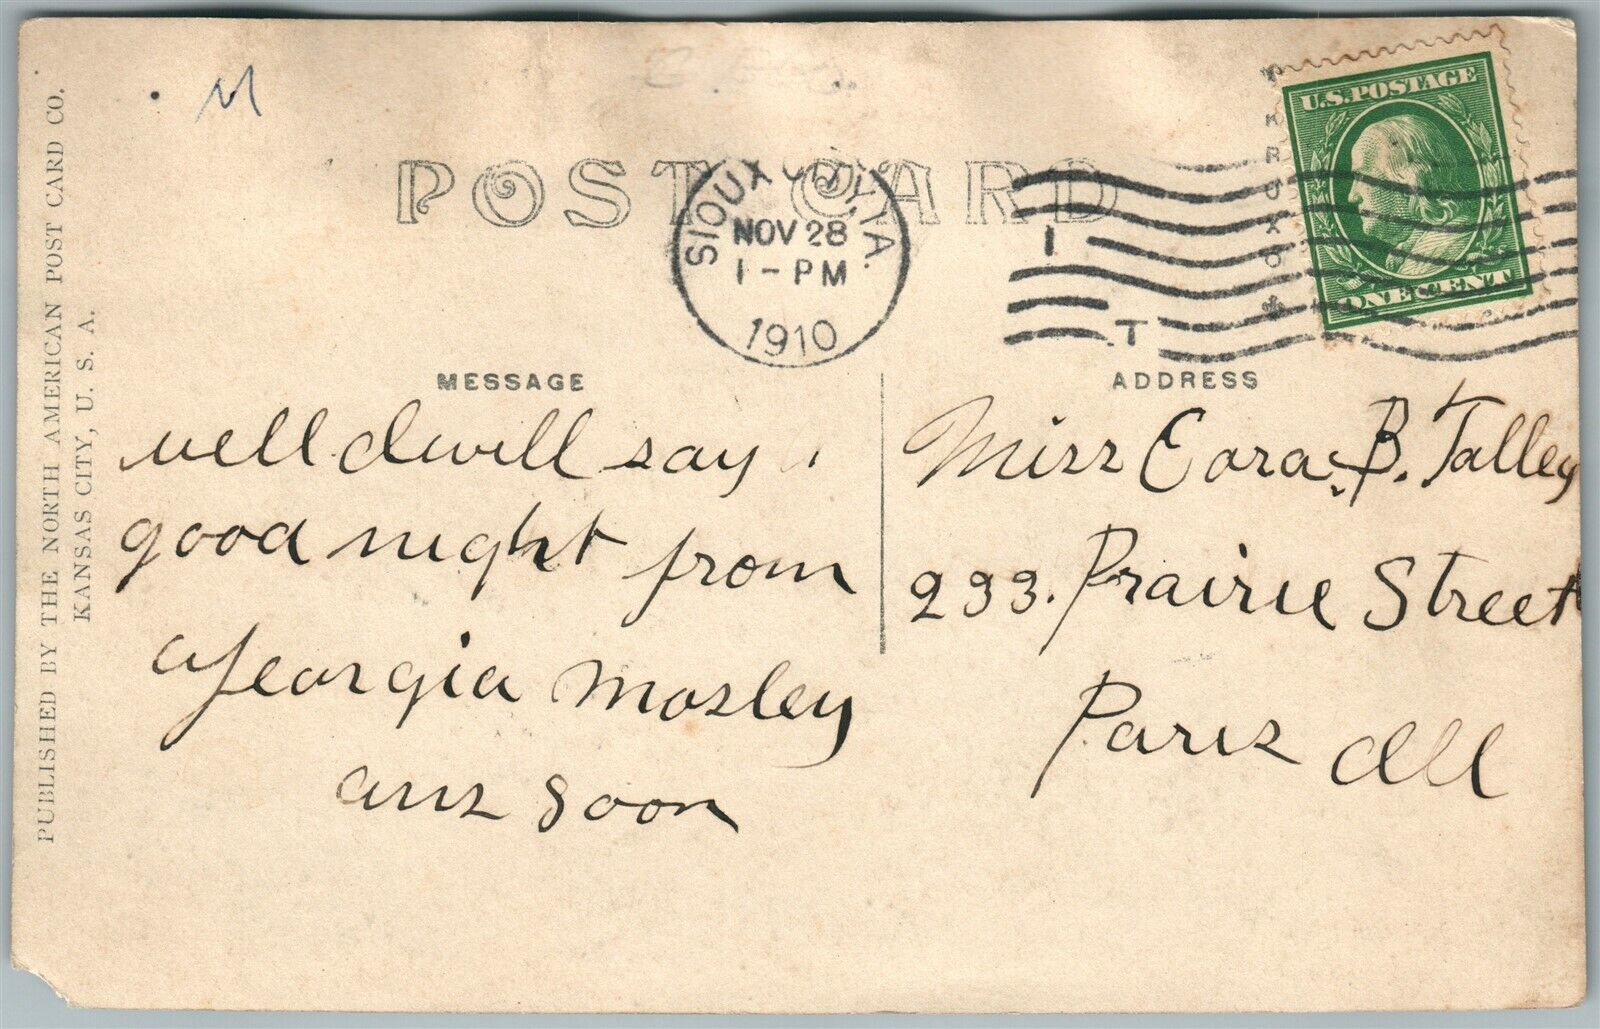 PUBLISHED BY THE NORTH AMERICAN POST CARD CO.
KANSAS CITY, U. S. A.
M
POST CARD
SIOUX CITY, IA.
NOV 28
1 - PM
1910
U.S. POSTAGE
ONE CENT
MESSAGE
well I will say
good night from
Georgia Mosley
ans soon
ADDRESS
Miss Eora B. Talley
233. Prairie Street
Paris Ill